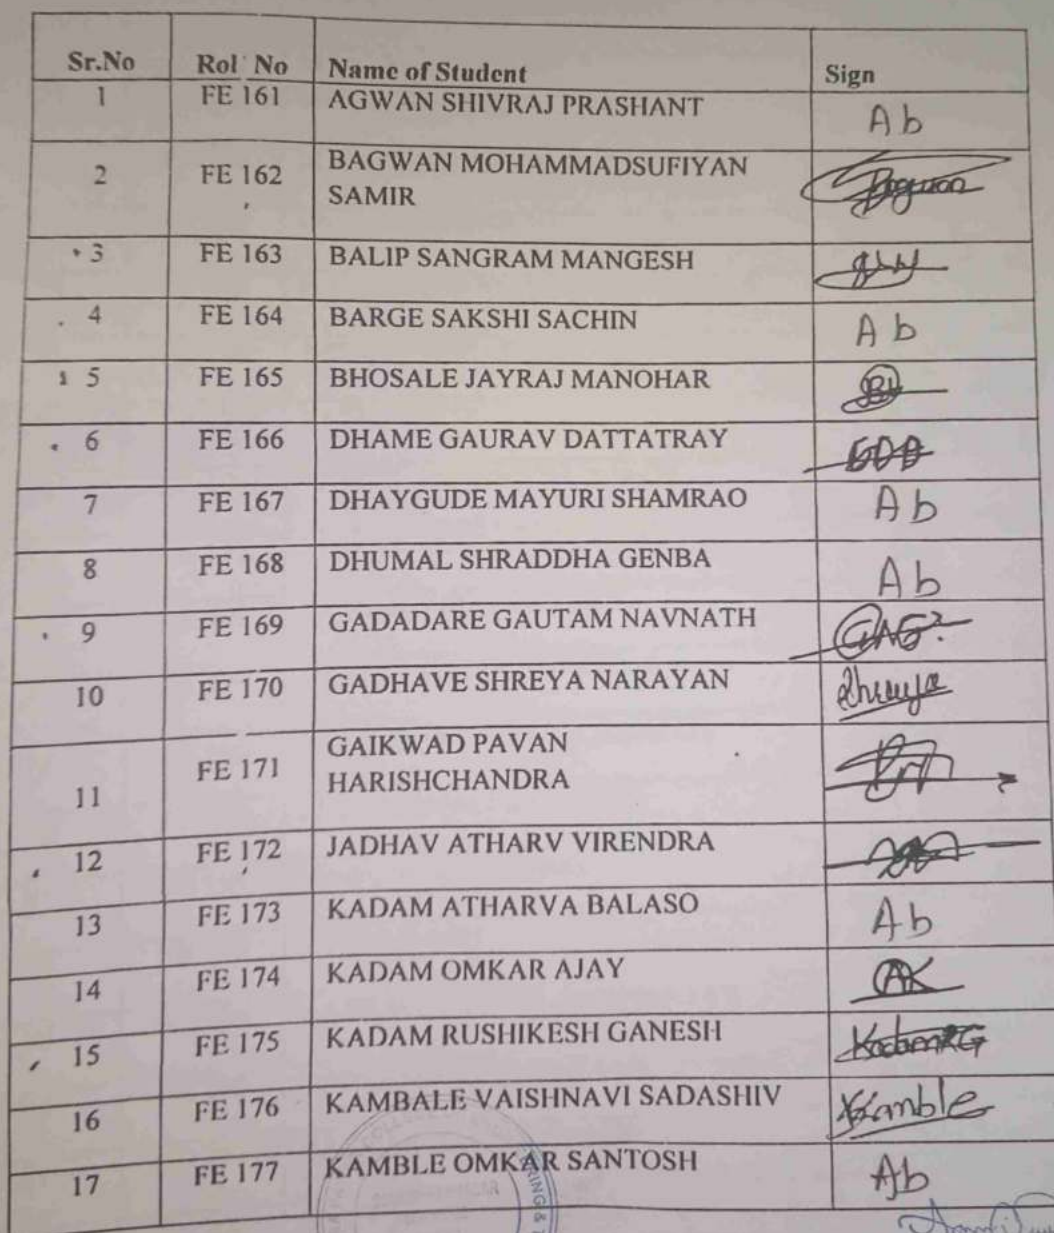 Sr.No Rol No Name of Student Sign
1 FE 161 AGWAN SHIVRAJ PRASHANT Ab
2 FE 162 BAGWAN MOHAMMADSUFIYAN
SAMIR Bagwan
3 FE 163 BALIP SANGRAM MANGESH
4 FE 164 BARGE SAKSHI SACHIN Ab
5 FE 165 BHOSALE JAYRAJ MANOHAR
6 FE 166 DHAME GAURAV DATTATRAY
7 FE 167 DHAYGUDE MAYURI SHAMRAO Ab
8 FE 168 DHUMAL SHRADDHA GENBA Ab
9 FE 169 GADADARE GAUTAM NAVNATH GNG
10 FE 170 GADHAVE SHREYA NARAYAN
11 FE 171 GAIKWAD PAVAN
HARISHCHANDRA
12 FE 172 JADHAV ATHARV VIRENDRA
13 FE 173 KADAM ATHARVA BALASO Ab
14 FE 174 KADAM OMKAR AJAY
15 FE 175 KADAM RUSHIKESH GANESH KadamRG
16 FE 176 KAMBALE VAISHNAVI SADASHIV Kamble
17 FE 177 KAMBLE OMKAR SANTOSH Ab